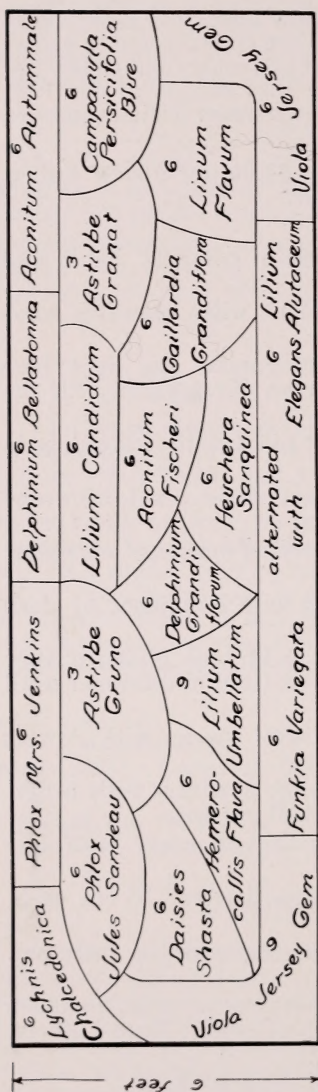 6
Lychnis
Chalcedonica
6
Phlox Mrs. Jenkins
6
Delphinium Belladonna
6
Aconitum Autumnale
6
Phlox
Jules Sandeau
3
Astilbe
Gruno
6
Lilium Candidum
3
Astilbe
Granat
6
Campanula
Persicifolia
Blue
6
Daisies
Shasta
6
Hemero-
callis Flava
9
Lilium
Umbellatum
6
Delphinium
Grandi-
florum
6
Aconitum
Fischeri
6
Heuchera
Sanquinea
6
Gaillardia
Grandiflora
6
Linum
Flavum
9
Viola Jersey Gem
6
Funkia Variegata
alternated
with
6
Lilium
Elegans Alutaceum
6
Viola Jersey Gem
6 feet